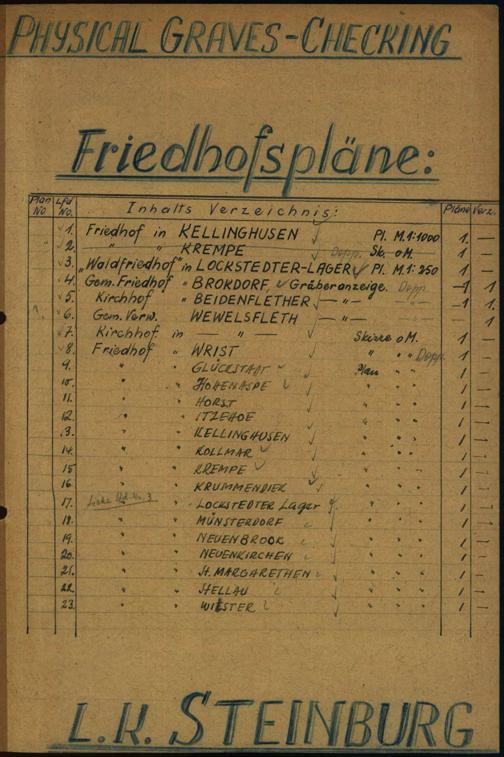 PHYSICAL GRAVES-CHECKING
Friedhofspläne:
Plan No Lfd No. Inhalts Verzeichnis: Pläne Verz.
1. Friedhof in KELLINGHUSEN Pl. M.1:1000 1. —
2. " " KREMPE Dopp. Sk. o.M. 1 —
3. "Waldfriedhof" in LOCKSTEDTER-LAGER Pl. M.1:250 1 —
4. Gem. Friedhof " BROKDORF, Gräberanzeige. Dopp. 1 1
5. Kirchhof " BEIDENFLETHER — " — 1 1
6. Gem. Verw. WEWELSFLETH — " — 1
7. Kirchhof in — " — Skizze o.M. 1 —
8. Friedhof " WRIST " " " Dopp. 1 —
9. " " GLÜCKSTADT Plan " " 1 —
10. " " HOHENASPE " " " 1 —
11. " " HORST " " " 1 —
12. " " ITZEHOE " " " 1 —
13. " " KELLINGHUSEN " " " 1 —
14. " " KOLLMAR " " " 1 —
15 " " KREMPE " " " 1 —
16 " " KRUMMENDIEK " " " 1 —
17. Siehe lfd. No. 3 " LOCKSTEDTER Lager " " " 1 —
18. " " MÜNSTERDORF " " " 1 —
19. " " NEUENBROOK " " " 1 —
20. " " NEUENKIRCHEN " " " 1 —
21. " " St. MARGARETHEN " " " 1 —
22. " " STELLAU " " " 1 —
23. " " WILSTER " " " 1 —
L.K. STEINBURG